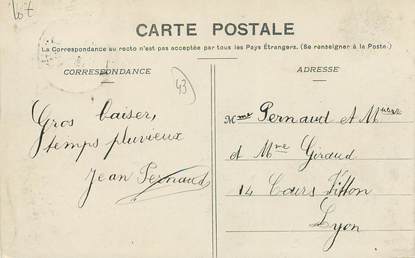 Lot
CARTE POSTALE
La Correspondance au recto n'est pas acceptée par tous les Pays Étrangers. (Se renseigner à la Poste.)
CORRESPONDANCE
ADRESSE
43
Gros baiser,
temps pluvieux
Jean Pernaud
Mme Pernaud et
et Mme Giraud
14 Cours Vitton
Lyon